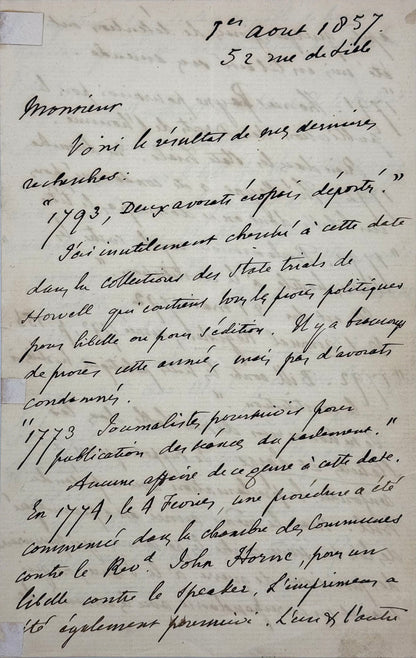 1er aout 1857.
52 rue de Lille
Monsieur
Voici le résultat de mes dernières
recherches:
"1793, Deux avocats écossais déporté."
J'ai inutilement cherché à cette date
dans la collections des State trials de
Howell qui contient tous les procès politiques
pour libelle ou pour sédition. Il y a beaucoup
de procès cette année, mais pas d'avocats
condamnés.
"1773 Journalistes poursuivis pour
publication des séances du parlement."
Aucune affaire de ce genre à cette date.
En 1774, le 4 Fevrier, une procédure a été
commencé dans la chambre des Communes
contre le Revd. John Horne, pour un
libelle contre le Speaker. L'imprimeur a
été également poursuivi. L'un & l'autre